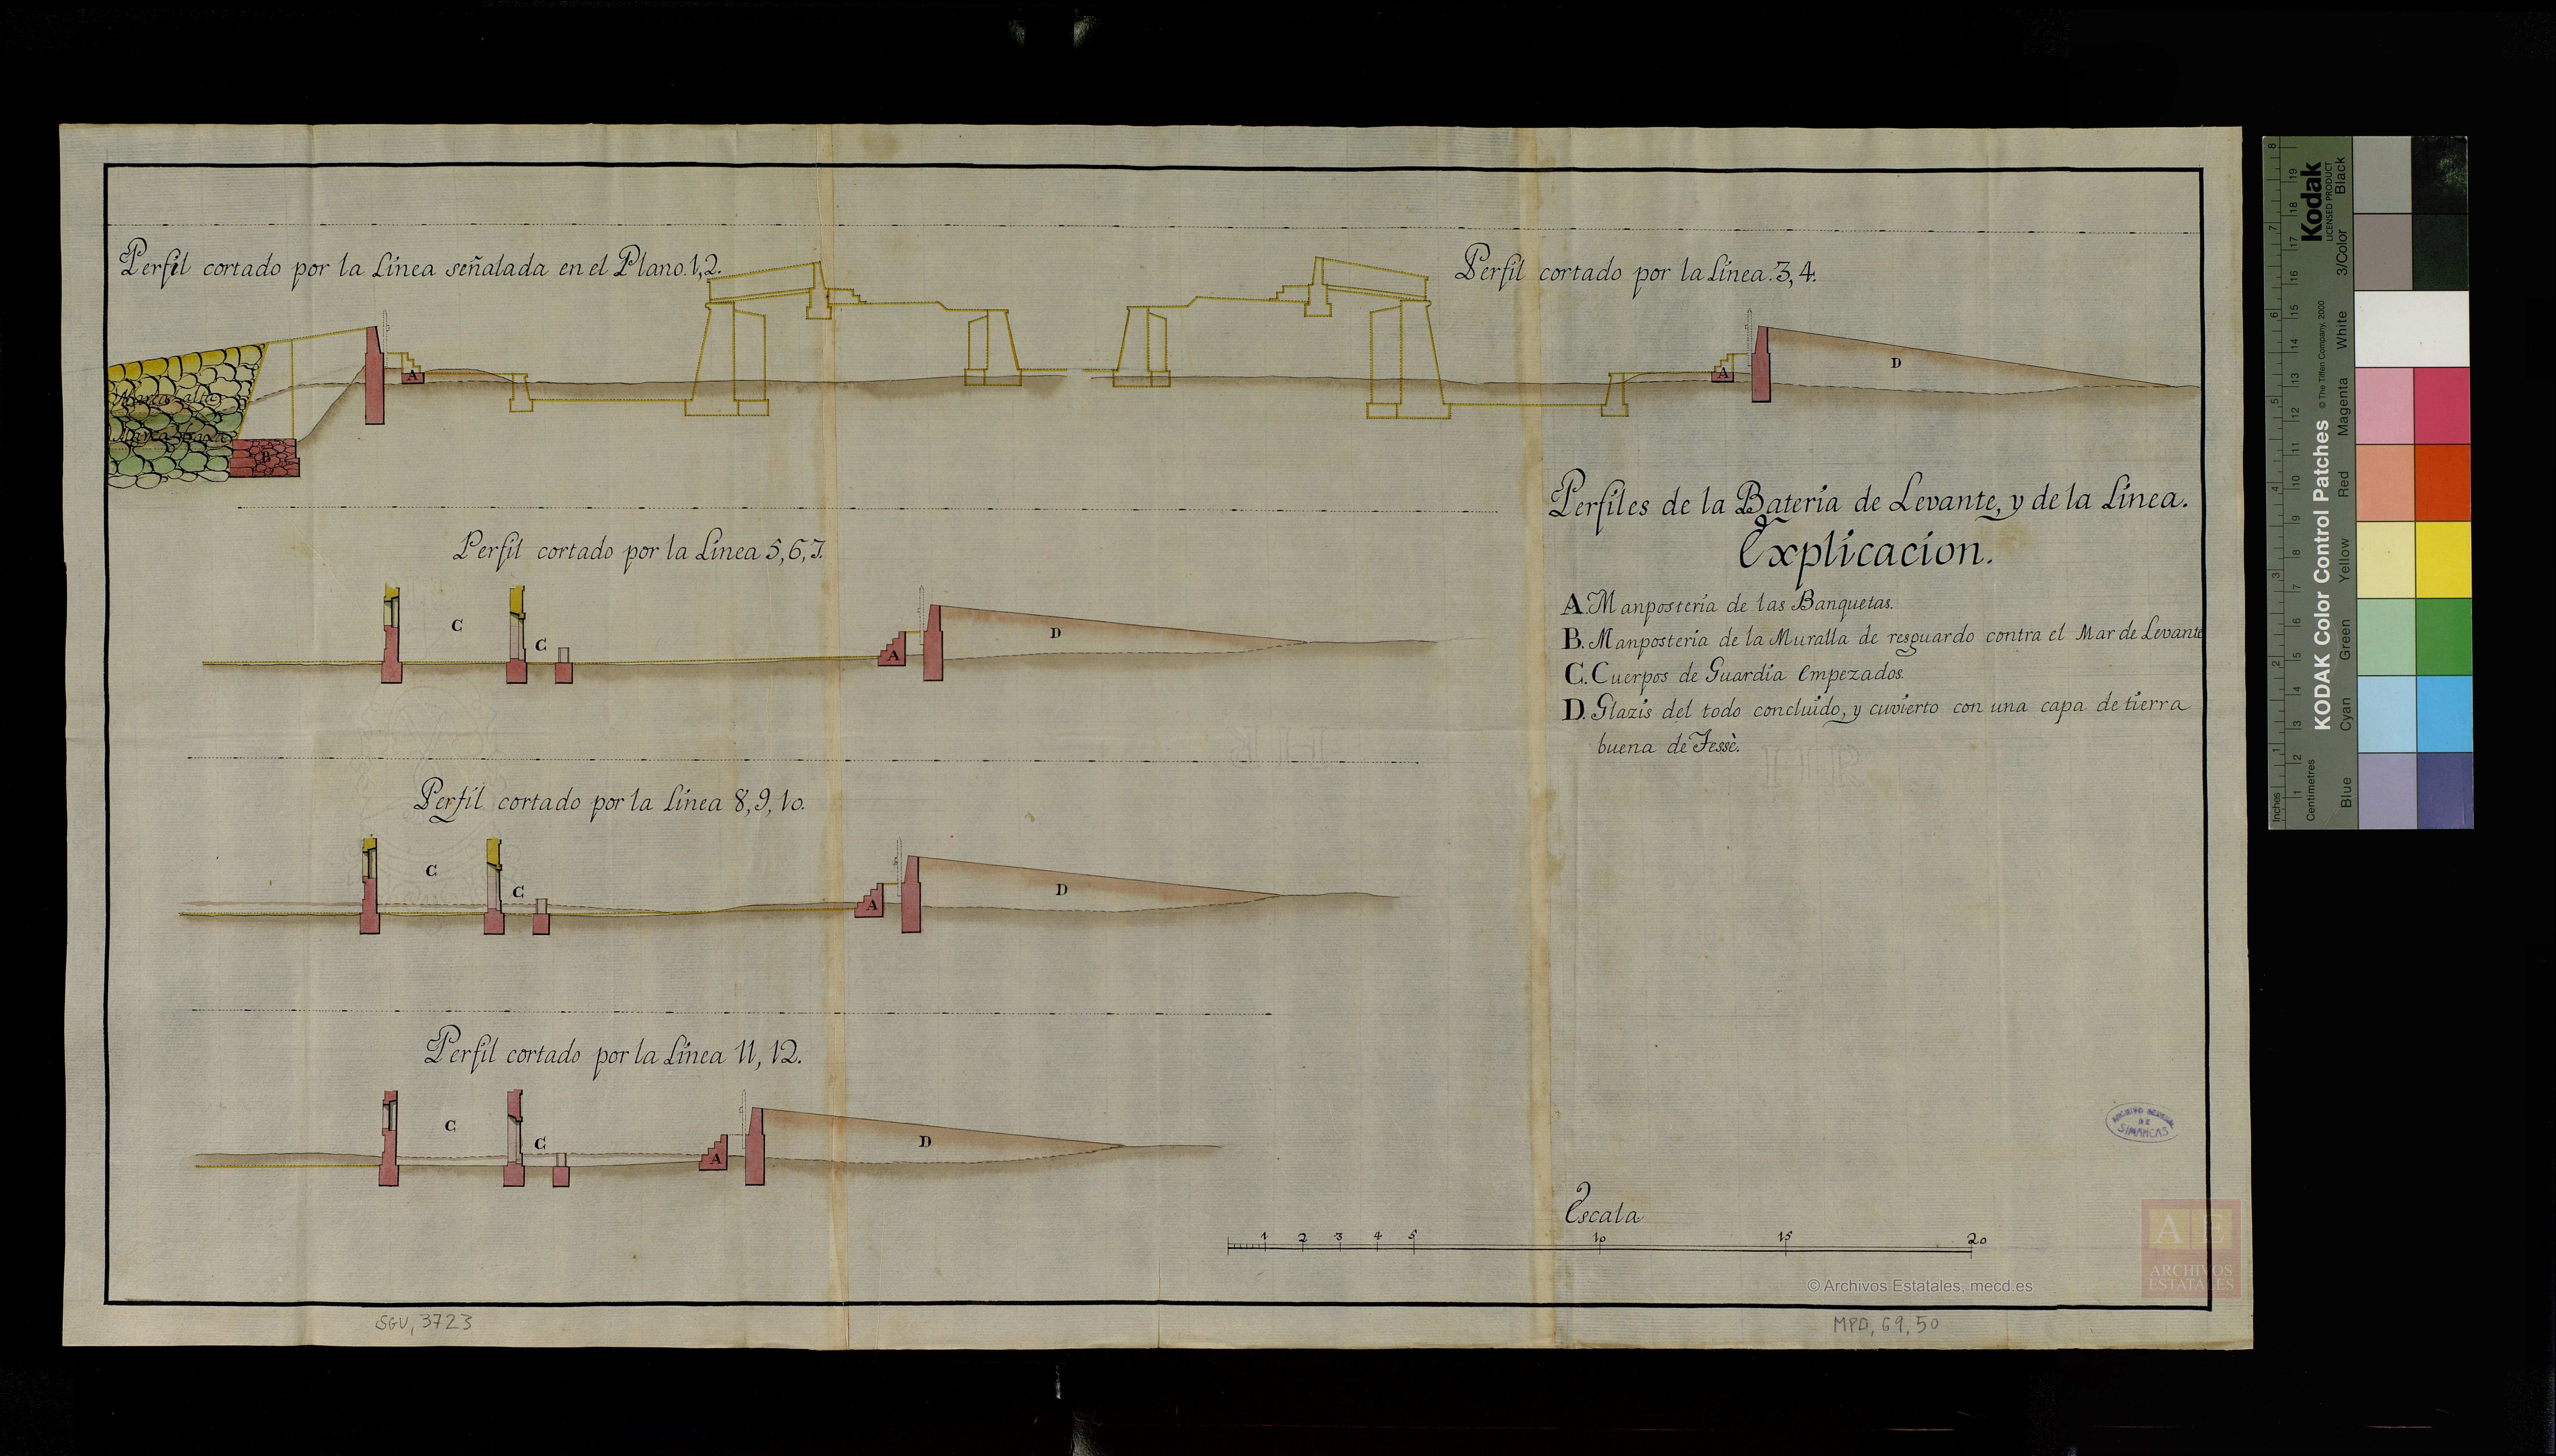 Perfil cortado por la Línea señalada en el Plano.1,2.
Perfil cortado por la Línea.3,4.
D
A
A
Marea alta
Marea baxa
B
Perfiles de la Bateria de Levante, y de la Línea.
Explicacion.
A. Mamposteria de las Banquetas.
B. Mamposteria de la Muralla de resguardo contra el Mar de Levante
C. Cuerpos de Guardia Empezados.
D. Glazis del todo concluido, y cuvierto con una capa de tierra
buena de Fessè.
Perfil cortado por la Línea 5,6,7.
C
C
A
D
Perfil cortado por la Línea 8,9,10.
C
C
A
D
Perfil cortado por la Línea 11,12.
C
C
A
D
Escala
1 2 3 4 5 10 15 20
ARCHIVO GENERAL
DE
SIMANCAS
© Archivos Estatales, mecd.es
AE
ARCHIVOS
ESTATALES
SGU, 3723
MPD, 69, 50
Kodak
LICENSED PRODUCT
KODAK Color Control Patches
© The Tiffen Company, 2000
Blue Cyan Green Yellow Red Magenta White 3/Color Black
Inches 1 2 3 4 5 6 7 8
Centimetres 1 2 3 4 5 6 7 8 9 10 11 12 13 14 15 16 17 18 19